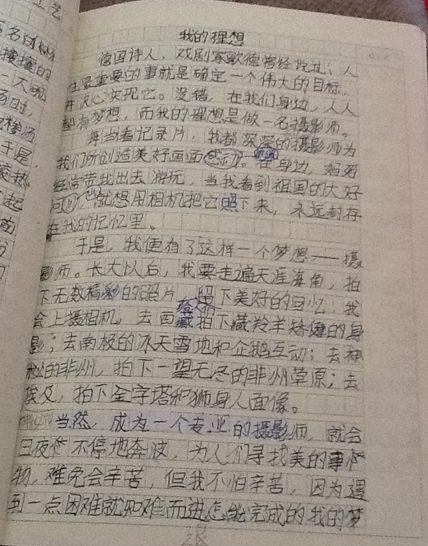 我的理想
德国诗人，戏剧家歌德曾经说过：人
生最重要的事就是确定一个伟大的目标，
并决心实现它。没错，在我们身边，人人
都有梦想，而我的理想是做一名摄影师。
每当看记录片，我都深深的摄影师为
我们所创造美好画面感动。在身边，爸妈
经常带我出去游玩，当我看到祖国的大好
河山，就想用相机把它照下来，永远封存
在我的记忆里。
于是，我便有了这样一个梦想——摄
影师。长大以后，我要走遍天涯海角，拍
下无数精彩的照片，留下美好的回忆：我
会上摄相机，去西藏拍下藏羚羊矫健的身
影；去南极的冰天雪地和企鹅互动；去神
秘的非洲，拍下一望无尽的非洲草原；去
埃及，拍下金字塔和狮身人面像。
当然，成为一个专业的摄影师，就会
日夜 不停地奔波，为人们寻找美的事
物，难免会辛苦，但我不怕辛苦，因为遇
到一点困难就知难而进怎能完成的我的梦